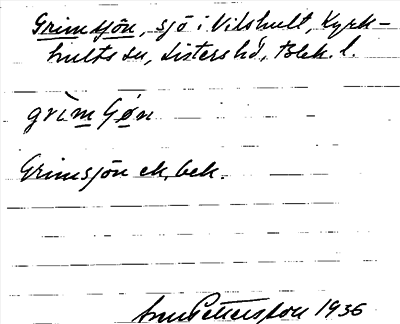 Grimsjön, sjö i Vilshult, Kyrk-
hults sn, Listers hd, Blek. l.
grìmʃön
Grimsjön ek, bek.
Pettersson 1936